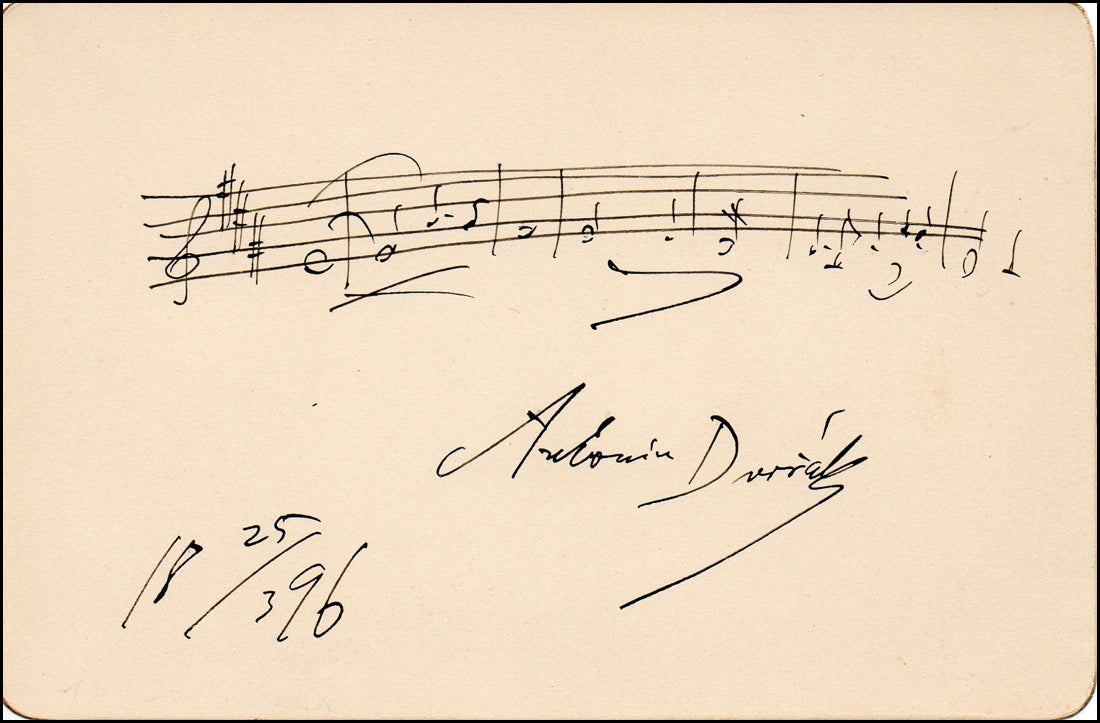 Antonín Dvořák
18 25/3 96